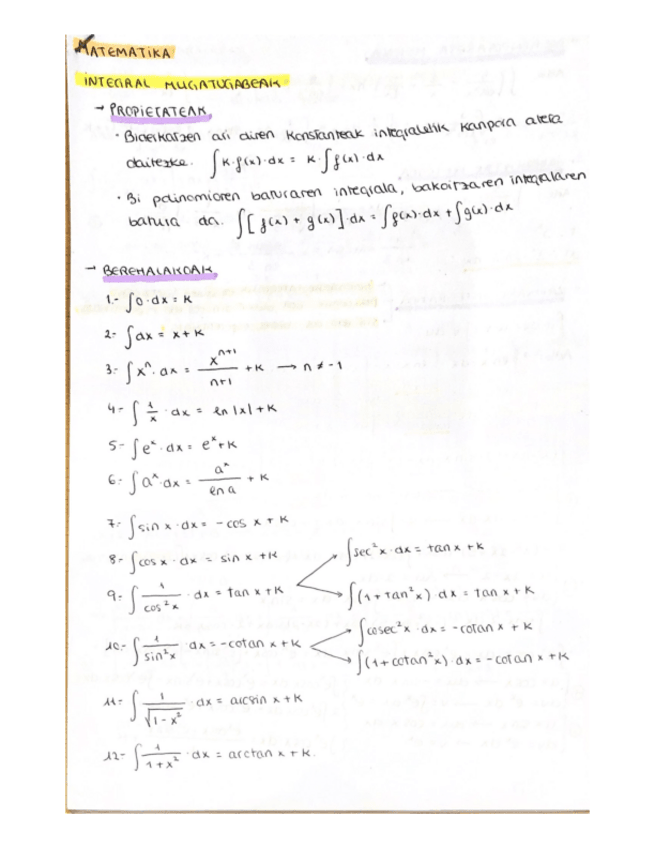 MATEMATIKA
INTEGRAL MUGATUGABEAK
→ PROPIETATEAK
· Biderkatzen ari diren konstanteak integraletik kanpora atera
daitezke. ∫k·f(x)·dx = k·∫f(x)·dx
· Bi polinomioren baturaren integrala, bakoitzaren integralaren
batura da. ∫[f(x) + g(x)]·dx = ∫f(x)·dx + ∫g(x)·dx
→ BEREHALAKOAK
1.- ∫0·dx = k
2.- ∫dx = x + k
3.- ∫xⁿ·dx = xⁿ⁺¹/(n+1) + k → n ≠ -1
4.- ∫1/x·dx = ln|x| + k
5.- ∫eˣ·dx = eˣ + k
6.- ∫aˣ·dx = aˣ/ln a + k
7.- ∫sin x·dx = -cos x + k
8.- ∫cos x·dx = sin x + k
9.- ∫1/cos²x·dx = tan x + k
∫sec²x·dx = tan x + k
∫(1 + tan²x)·dx = tan x + k
10.- ∫1/sin²x·dx = -cotan x + k
∫cosec²x·dx = -cotan x + k
∫(1 + cotan²x)·dx = -cotan x + k
11.- ∫1/√(1-x²)·dx = arcsin x + k
12.- ∫1/(1+x²)·dx = arctan x + k.